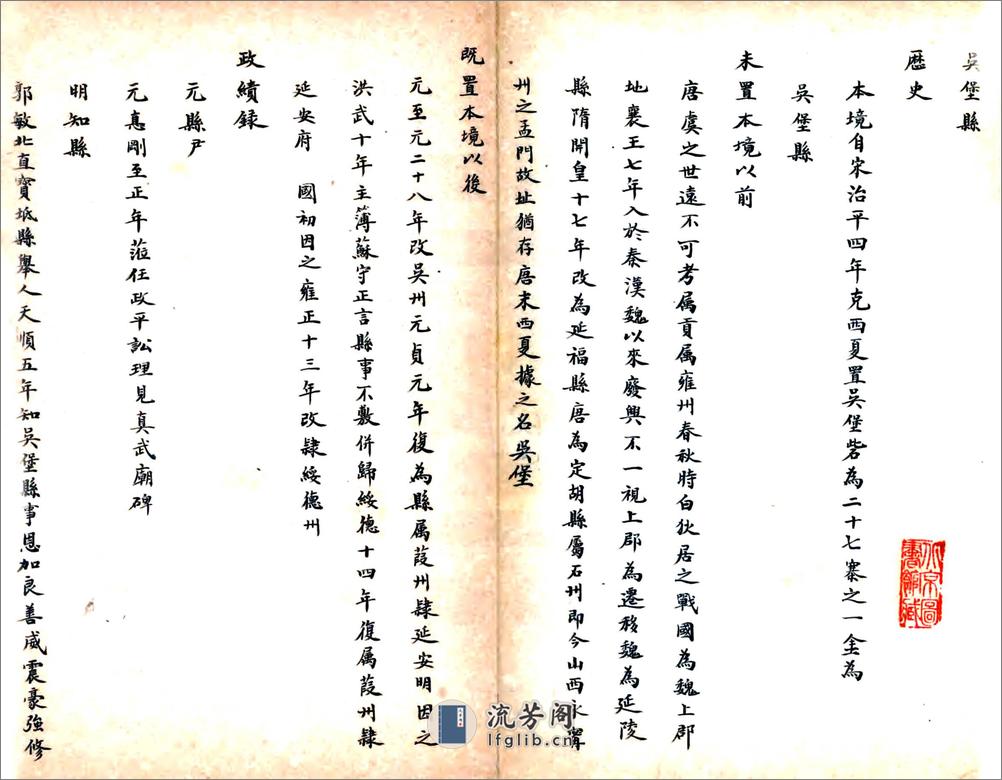 吳堡縣
歷史
本境自宋治平四年克西夏置吳堡砦為二十七寨之一金為
吳堡縣
未置本境以前
唐虞之世遠不可考属貢属雍州春秋時白狄居之戰國為魏上郡
地襄王七年入於秦漢魏以來廢興不一視上郡為遷移魏為延陵
縣隋開皇十七年改為延福縣唐為定胡縣屬石州即今山西永寧
州之孟門故址猶存唐末西夏據之名吳堡
既置本境以後
元至元二十八年改吳州元貞元年復為縣属葭州隸延安明因之
洪武十年主薄蘇守正言縣事不敷併歸綏德十四年復属葭州隸
延安府 國初因之雍正十三年改隸綏德州
政績録
元縣尹
元惪剛至正年蒞任政平訟理見真武廟碑
明知縣
郭敏北直寶坻縣舉人天順五年知吳堡縣事恩加良善威震豪強修
北京圖書館藏
流芳阁
lfglib.cn